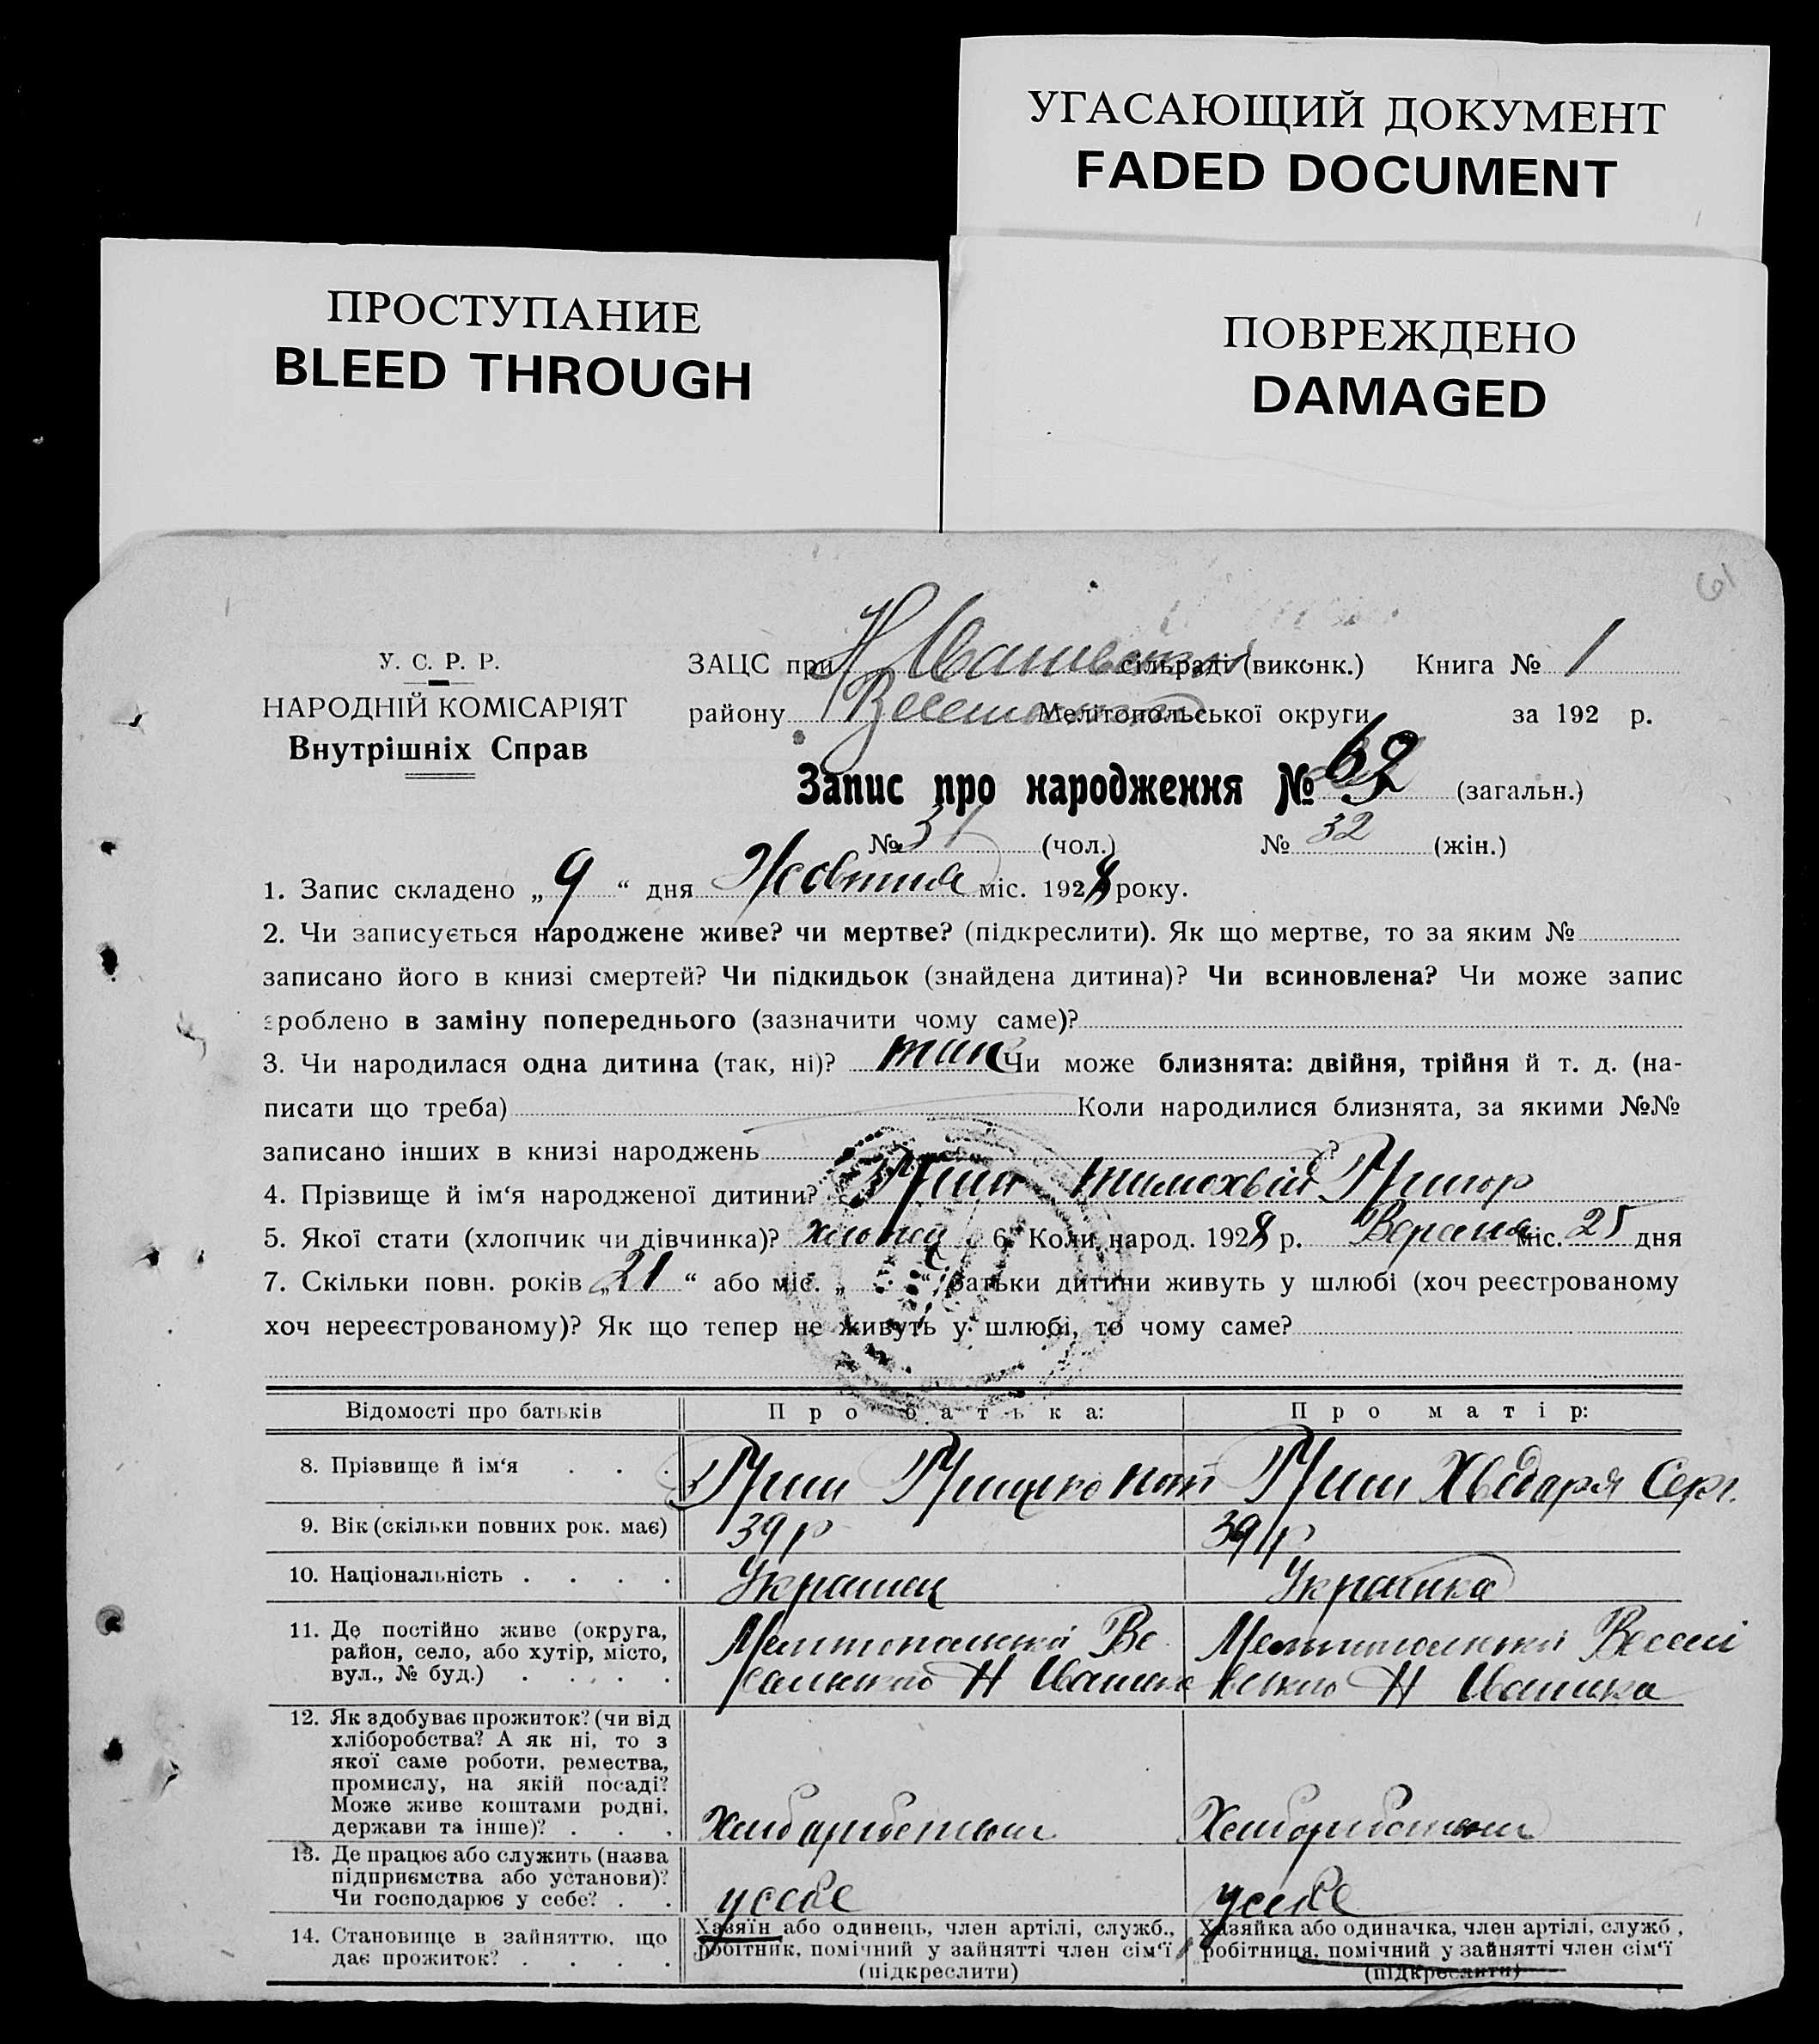 УГАСАЮЩИЙ ДОКУМЕНТ
FADED DOCUMENT
ПРОСТУПАНИЕ
BLEED THROUGH
ПОВРЕЖДЕНО
DAMAGED
61
У. С. Р. Р.
НАРОДНІЙ КОМІСАРІЯТ
Внутрішніх Справ
ЗАЦС при Н сільраді (виконк.) Книга № 1
району Мелітопольської округи за 192 р.
Запис про народження № 62 (загальн.)
№ 31 (чол.) № 32 (жін.)
1. Запис складено „ 9 “ дня Жовтня міс. 1928 року.
2. Чи записується народжене живе? чи мертве? (підкреслити). Як що мертве, то за яким №
записано його в книзі смертей? Чи підкидьок (знайдена дитина)? Чи всиновлена? Чи може запис
зроблено в заміну попереднього (зазначити чому саме)?
3. Чи народилася одна дитина (так, ні)? так Чи може близнята: двійня, трійня й т. д. (на-
писати що треба) Коли народилися близнята, за якими №№
записано інших в книзі народжень ?
4. Прізвище й ім‘я народженої дитини? Тимохвій Григор
5. Якої стати (хлопчик чи дівчинка)? хлопец 6. Коли народ. 1928 р. Вересня міс. 25 дня
7. Скільки повн. років „ 21 “ або міс. „ “ батьки дитини живуть у шлюбі (хоч реєстрованому
хоч нереєстрованому)? Як що тепер не живуть у шлюбі, то чому саме?
Відомості про батьків Про батька: Про матір:
8. Прізвище й ім‘я . . . Грицько Хведаря Серг.
9. Вік (скільки повних рок. має) 39 р 39 р
10. Національність . . . . Украинец Украинка
11. Де постійно живе (округа,
район, село, або хутір, місто,
вул., № буд.) . . . .
Мелитопольской Ве
Н Ивашки
Мелитопольской Весели
вского Н Ивашка
12. Як здобуває прожиток? (чи від
хліборобства? А як ні, то з
якої саме роботи, ремества,
промислу, на якій посаді?
Може живе коштами родні,
держави та інше)? . . .
13. Де працює або служить (назва
підприємства або установи)?
Чи господарює у себе? . .
у себе у себе
14. Становище в зайняттю, що
дає прожиток? . . . .
Хазяїн або одинець, член артілі, служб.,
робітник, помічний у зайнятті член сім‘ї
(підкреслити)
Хазяйка або одиначка, член артілі, служб.,
робітниця, помічний у зайнятті член сім‘ї
(підкреслити)